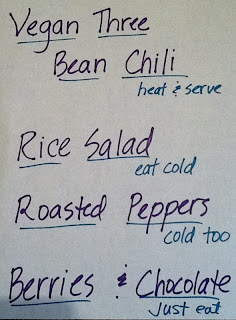 Vegan Three
Bean Chili
heat & serve
Rice Salad
eat cold
Roasted Peppers
cold too
Berries & Chocolate
Just eat